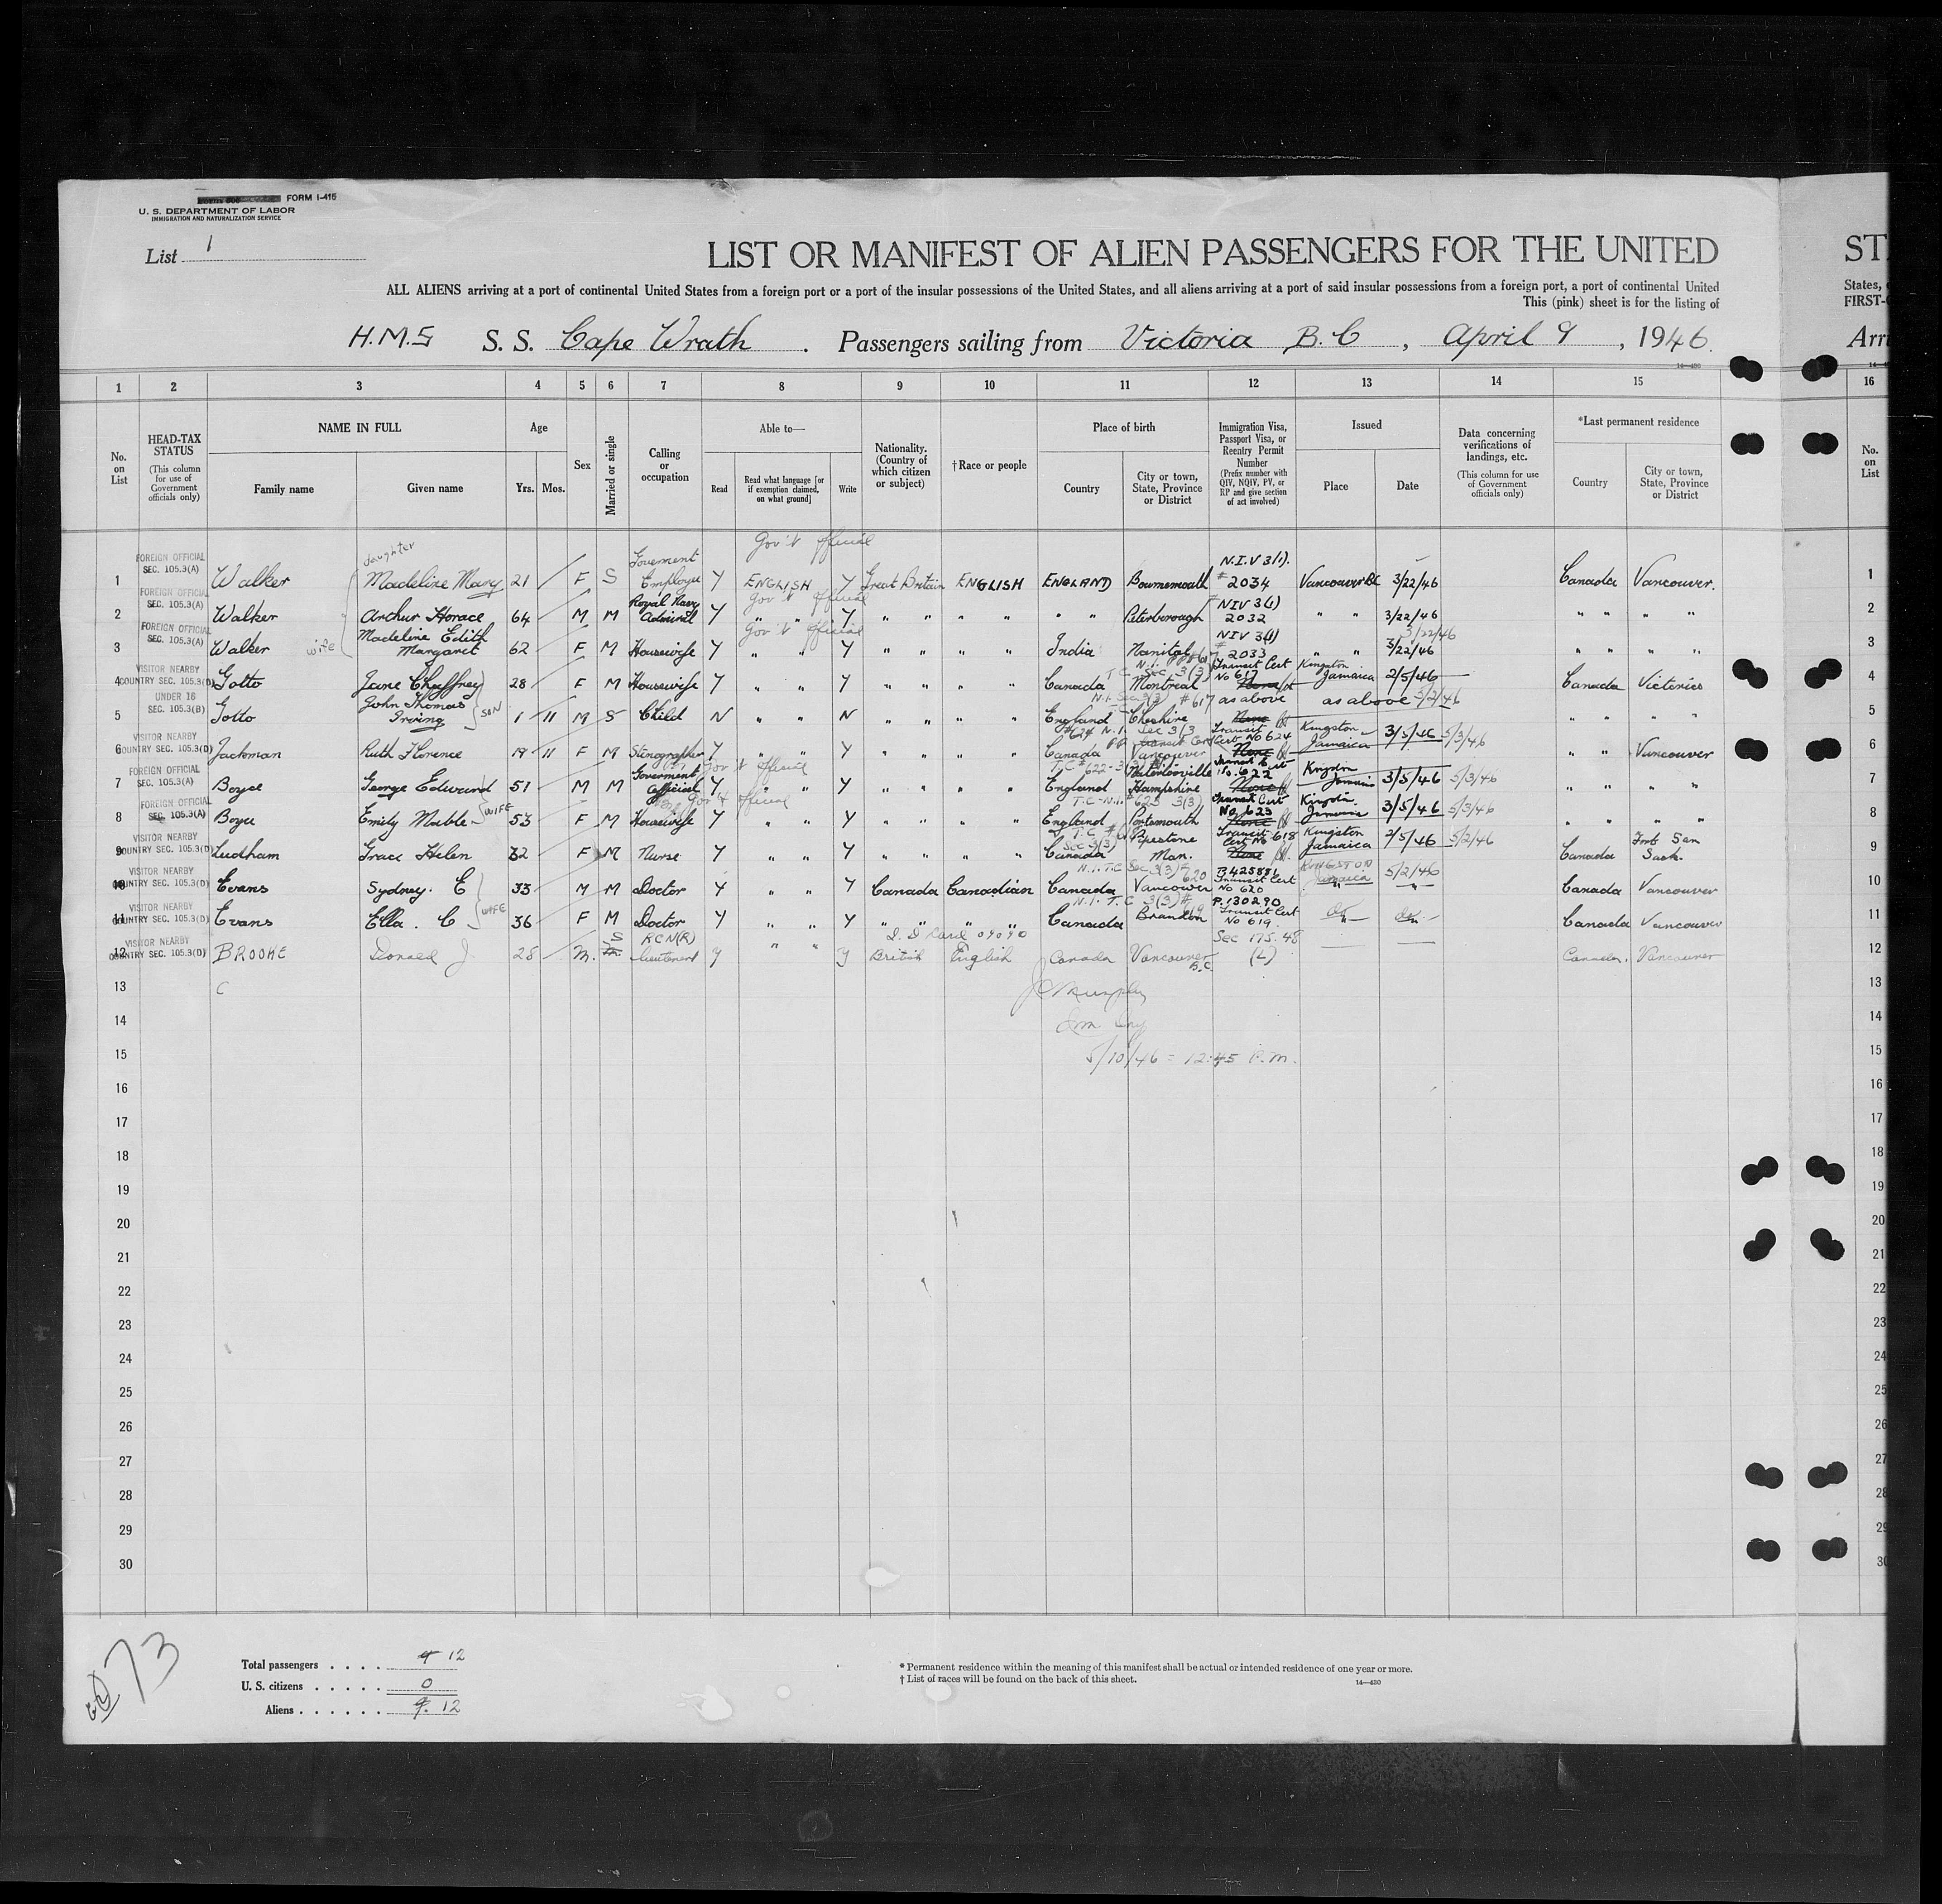 FORM I-415
U. S. DEPARTMENT OF LABOR
IMMIGRATION AND NATURALIZATION SERVICE
List 1
LIST OR MANIFEST OF ALIEN PASSENGERS FOR THE UNITED
ST
ALL ALIENS arriving at a port of continental United States from a foreign port or a port of the insular possessions of the United States, and all aliens arriving at a port of said insular possessions from a foreign port, a port of continental United
States,
This (pink) sheet is for the listing of
FIRST-
H.M.S S. S. Cape Wrath. Passengers sailing from Victoria B.C, April 9, 1946.
Arri
14—430
1 2 3 4 5 6 7 8 9 10 11 12 13 14 15 16
No. on List
HEAD-TAX STATUS
(This column for use of Government officials only)
NAME IN FULL
Family name
Given name
Age
Yrs. Mos.
Sex
Married or single
Calling or occupation
Able to—
Read
Read what language [or if exemption claimed, on what ground]
Write
Nationality. (Country of which citizen or subject)
†Race or people
Place of birth
Country
City or town, State, Province or District
Immigration Visa, Passport Visa, or Reentry Permit Number
(Prefix number with QIV, NQIV, PV, or RP and give section of act involved)
Issued
Place
Date
Data concerning verifications of landings, etc.
(This column for use of Government officials only)
*Last permanent residence
Country
City or town, State, Province or District
No. on List
daughter Gov't official
FOREIGN OFFICIAL SEC. 105.3(A)
1 Walker Madeline Mary 21 F S Goverment Employee Y ENGLISH Y Great Britain ENGLISH ENGLAND Bournemouth N.I.V 3(1). # 2034 Vancouver BC 3/22/46 Canada Vancouver. 1
FOREIGN OFFICIAL SEC. 105.3(A) Gov't official
2 Walker Arthur Horace 64 M M Royal Navy Admiral Y " " Y " " " " " " Peterborough # NIV 3(1) 2032 " " 3/22/46 " " " " 2
FOREIGN OFFICIAL SEC. 105.3(A) Gov't official
3 Walker wife Madeline Edith Margaret 62 F M Housewife Y " " Y " " " " India NIV 3(1) # 2033 " " 3/22/46 3/22/46 " " " " 3
VISITOR NEARBY COUNTRY SEC. 105.3(D)
4 Gotto Jane Chaffney 28 F M Housewife Y " " Y " " " " Canada Montreal T.C. Sec 3(3) Transit Cert No 617 None Kingston Jamaica 2/5/46 Canada Victoria 4
UNDER 16 SEC. 105.3(B)
5 Gotto John Thomas Irving SON 1 11 M S Child N " " N " " " " England Cheshire #617 as above None as above 5/2/46 " " " " 5
VISITOR NEARBY COUNTRY SEC. 105.3(D)
6 Jackman Ruth Florence 19 11 F M Stenographer Y " " Y " " " " Canada Vancouver #624 N.I. Sec 3(3) Transit Cert No 624 None Kingston Jamaica 3/5/46 5/3/46 " " Vancouver 6
FOREIGN OFFICIAL SEC. 105.3(A) Gov't official
7 Boyce George Edward 51 M M Goverment Official Y " " Y " " " " England Waterlooville Hampshire Transit Cert No. 622 None Kingston Jamaica 3/5/46 5/3/46 " " " 7
FOREIGN OFFICIAL SEC. 105.3(A) Gov't official
8 Boyce Emily Mable WIFE 53 F M Housewife Y " " Y " " " " England Portsmouth T.C-N.I. # 623 3(3) Transit Cert No. 623 None Kingston Jamaica 3/5/46 5/3/46 " " " 8
VISITOR NEARBY COUNTRY SEC. 105.3(D)
9 Ludham Grace Helen 32 F M Nurse Y " " Y " " " " Canada Pipestone Man. Sec 3(3) Transit Cert No 618 None Kingston Jamaica 2/5/46 5/2/46 Canada Fort San Sask. 9
VISITOR NEARBY COUNTRY SEC. 105.3(D)
10 Evans Sydney. E 33 M M Doctor Y " " Y Canada Canadian Canada Vancouver N.I. T.C Sec 3(3) # 620 Transit Cert No 620 KINGSTON Jamaica 5/2/46 Canada Vancouver 10
VISITOR NEARBY COUNTRY SEC. 105.3(D)
11 Evans Ella. C WIFE 36 F M Doctor Y " " Y " " " Canada Brandon N.I. T.C 3(3) # P.130290 Transit Cert No 619. do do Canada Vancouver 11
VISITOR NEARBY COUNTRY SEC. 105.3(D) I.D Card 09090
12 BROOKE Donald J. 28 M. S M. RCN(R) Lieutenant y " " y British English Canada Vancouver B.C. Sec 175.48 (L) Canada. Vancouver 12
13 C J C Murphy 13
14 Imm Insp 14
15 5/10/46 = 12:45 P.M. 15
16 16
17 17
18 18
19 19
20 20
21 21
22 22
23 23
24 24
25 25
26 26
27 27
28 28
29 29
30 30
73
Total passengers . . . . 9 12
U. S. citizens . . . . . 0
Aliens . . . . . . 9. 12
* Permanent residence within the meaning of this manifest shall be actual or intended residence of one year or more.
† List of races will be found on the back of this sheet.
14—430